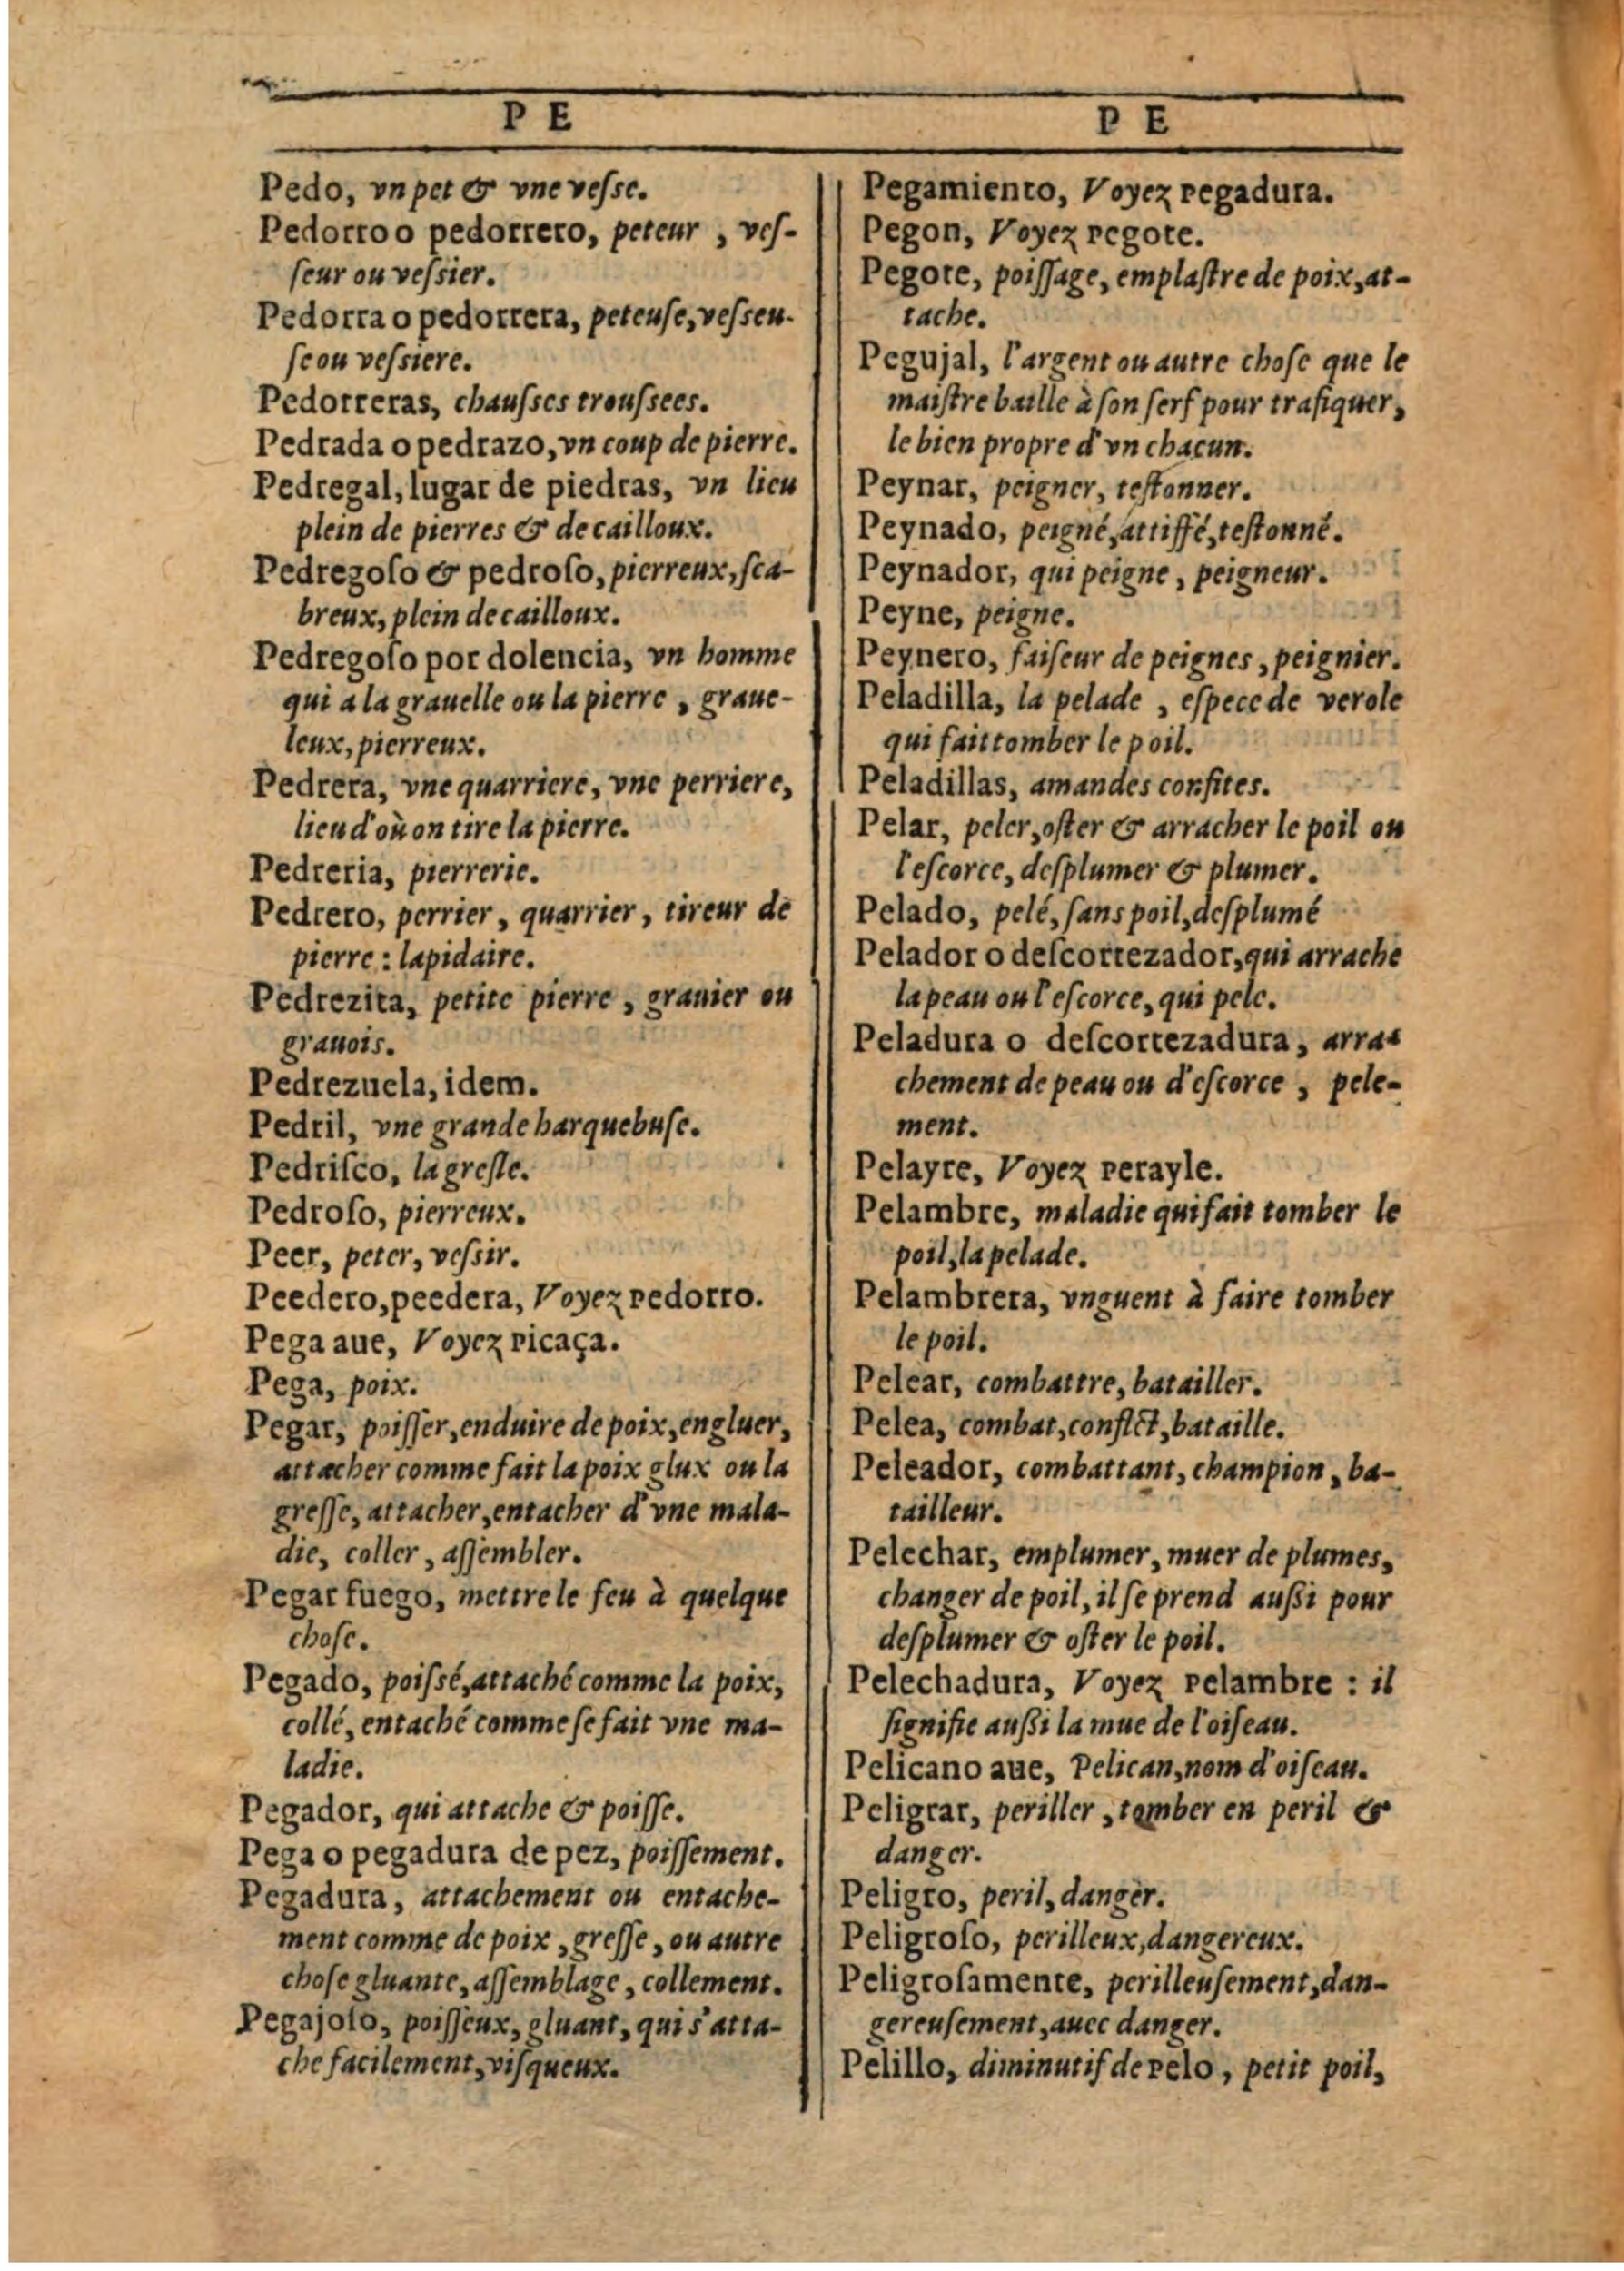 P E
Pedo, vn pet & vne vesse.
Pedorro o pedorrero, peteur, ves-
seur ou vessier.
Pedorra o pedorrera, peteuse, vesseu-
se ou vessiere.
Pedorreras, chausses troussees.
Pedrada o pedrazo, vn coup de pierre.
Pedregal, lugar de piedras, vn lieu
plein de pierres & de cailloux.
Pedregoſo & pedroſo, pierreux, ſca-
breux, plein de cailloux.
Pedregoſo por dolencia, vn homme
qui a la grauelle ou la pierre, graue-
leux, pierreux.
Pedrera, vne quarriere, vne perriere,
lieu d'où on tire la pierre.
Pedreria, pierrerie.
Pedrero, perrier, quarrier, tireur de
pierre : lapidaire.
Pedrezita, petite pierre, grauier ou
grauois.
Pedrezuela, idem.
Pedril, vne grande harquebuſe.
Pedriſco, la greſle.
Pedroſo, pierreux.
Peer, peter, veſsir.
Peedero, peedera, Voyez pedorro.
Pega aue, Voyez picaça.
Pega, poix.
Pegar, poiſſer, enduire de poix, engluer,
attacher comme fait la poix glux ou la
greſſe, attacher, entacher d'vne mala-
die, coller, aſſembler.
Pegar fuego, mettre le feu à quelque
choſe.
Pegado, poiſsé, attaché comme la poix,
collé, entaché comme ſe fait vne ma-
ladie.
Pegador, qui attache & poiſſe.
Pega o pegadura de pez, poiſſement.
Pegadura, attachement ou entache-
ment comme de poix, greſſe, ou autre
choſe gluante, aſſemblage, collement.
Pegajoſo, poiſſeux, gluant, qui s'atta-
che facilement, viſqueux.
P E
Pegamiento, Voyez pegadura.
Pegon, Voyez pegote.
Pegote, poiſſage, emplaſtre de poix, at-
tache.
Pegujal, l'argent ou autre choſe que le
maiſtre baille à ſon ſerf pour trafiquer,
le bien propre d'vn chacun.
Peynar, peigner, teſtonner.
Peynado, peigné, attiffé, teſtonné.
Peynador, qui peigne, peigneur.
Peyne, peigne.
Peynero, faiſeur de peignes, peignier.
Peladilla, la pelade, eſpece de verole
qui fait tomber le poil.
Peladillas, amandes confites.
Pelar, peler, oſter & arracher le poil ou
l'eſcorce, deſplumer & plumer.
Pelado, pelé, ſans poil, deſplumé
Pelador o deſcortezador, qui arrache
la peau ou l'eſcorce, qui pele.
Peladura o deſcortezadura, arra-
chement de peau ou d'eſcorce, pele-
ment.
Pelayre, Voyez perayle.
Pelambre, maladie qui fait tomber le
poil, la pelade.
Pelambrera, vnguent à faire tomber
le poil.
Pelear, combattre, batailler.
Pelea, combat, conflict, bataille.
Peleador, combattant, champion, ba-
tailleur.
Pelechar, emplumer, muer de plumes,
changer de poil, il ſe prend auſsi pour
deſplumer & oſter le poil.
Pelechadura, Voyez pelambre : il
ſignifie auſsi la mue de l'oiſeau.
Pelicano aue, Pelican, nom d'oiſeau.
Peligrar, periller, tomber en peril &
danger.
Peligro, peril, danger.
Peligroſo, perilleux, dangereux.
Peligroſamente, perilleuſement, dan-
gereuſement, auec danger.
Pelillo, diminutif de pelo, petit poil,